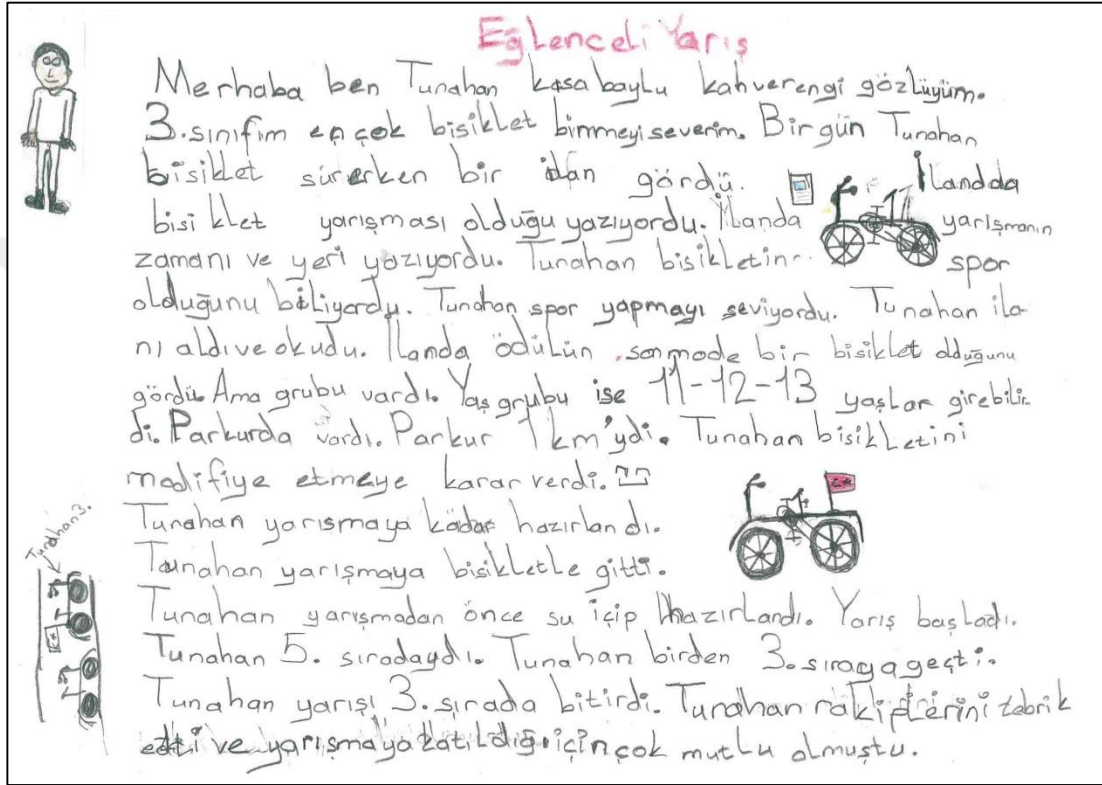 Eğlenceli Yarış
Merhaba ben Tunahan kısa boylu kahverengi gözlüyüm.
3.sınıfım en çok bisiklet binmeyi severim. Bir gün Tunahan
bisiklet sürerken bir ilan gördü. İlandda
bisiklet yarışması olduğu yazıyordu. İlanda yarışmanın
zamanı ve yeri yazıyordu. Tunahan bisikletin spor
olduğunu biliyordu. Tunahan spor yapmayı seviyordu. Tunahan ila-
nı aldı ve okudu. İlanda ödülün son mode bir bisiklet olduğunu
gördü. Ama grubu vardı. Yaş grubu ise 11-12-13 yaşlar girebilir-
di. Parkurda vardı. Parkur 1 km'ydi. Tunahan bisikletini
modifiye etmeye karar verdi.
Tunahan yarışmaya kadar hazırlandı.
Tunahan yarışmaya bisikletle gitti.
Tunahan yarışmadan önce su içip hazırlandı. Yarış başladı.
Tunahan 5. sıradaydı. Tunahan birden 3. sıraya geçti.
Tunahan yarışı 3. sırada bitirdi. Tunahan rakiplerini tebrik
etti ve yarışmaya katıldığı için çok mutlu olmuştu.
Tunahan 3.